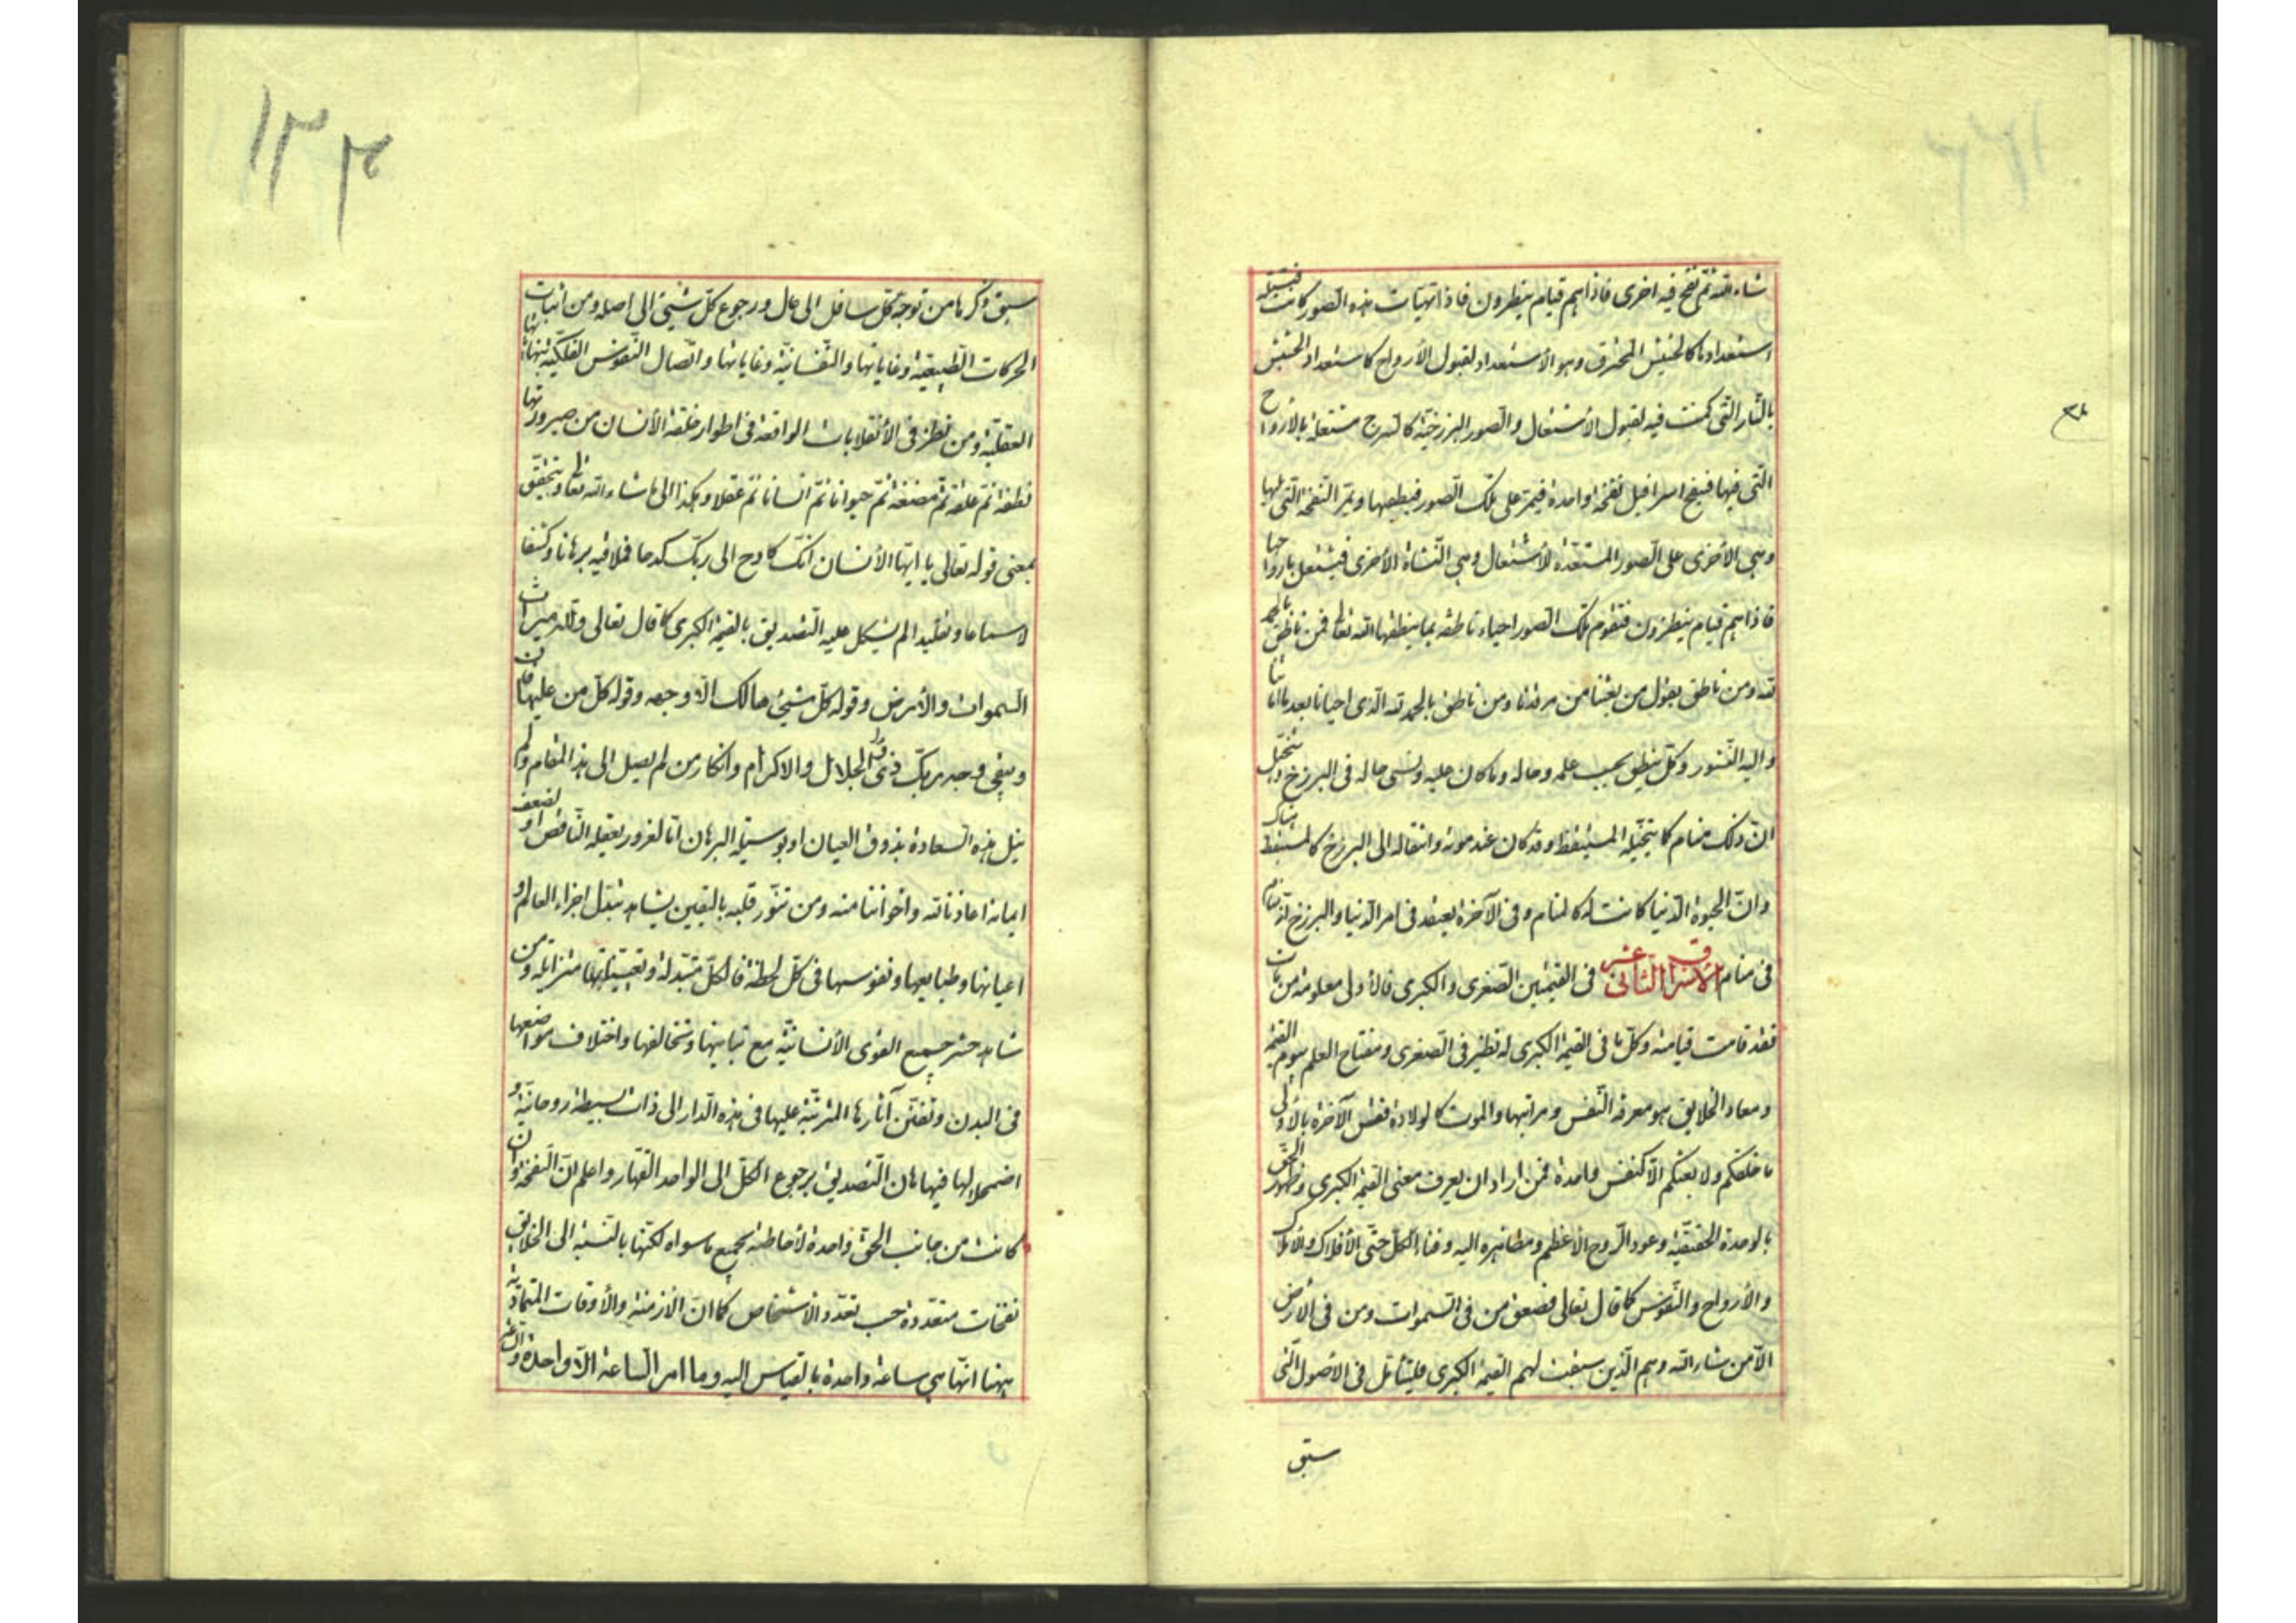 شاء الله ثم نفخ فيه اخرى فاذا هم قيام ينظرون فاذا تهيأت هذه الصور كانت فتيلة
استعدادها كالحشيش المحترق وهو الأستعداد لقبول الأرواح كاستعداد الحشيش
بالنار التى كمنت فيه لقبول الاشتعال والصور البرزخية كالسرج مشتعلة بالأرواح
التى فيها فينفخ اسرافيل نفخة واحدة فيمر على تلك الصور فيطفيها ويمر النفخة التى تليها
وهى الأخرى على الصور المستعدة للأشتعال وهى النشأة الأخرى فيشتعل بارواحها
فاذا هم قيام ينظرون فتقوم تلك الصور احياء ناطقة بما ينطقها الله تعالى فمن ناطق بالحمد
لله ومن ناطق يقول من بعثنا من مرقدنا ومن ناطق بالحمد لله الذى احيانا بعد ما اماتنا
واليه النشور وكل ينطق بحسب علمه وحاله وما كان عليه ونسى حاله فى البرزخ ويتخيل
ان ذلك منام كما يتخيله المستيقظ وقد كان عند موته وانتقاله الى البرزخ كالمستيقظ هناك
وان الحيوة الدنيا كانت له كالمنام وفى الآخرة يعتقد فى امر الدنيا والبرزخ انه منام
فى منام الاشراق الثانى عشر فى القيمتين الصغرى والكبرى فالأولى معلومة من مات
فقد قامت قيامته وكل ما فى القيمة الكبرى له نظير فى الصغرى ومفتاح العلم بيوم القيمة
ومعاد الخلايق هو معرفة النفس ومراتبها والموت كالولادة فقس الآخرة بالأولى
ما خلقكم ولا بعثكم الا كنفس واحدة فمن اراد ان يعرف معنى القيمة الكبرى وظهور الحق
بالوحدة الحقيقية وعود الروح الاعظم ومظاهره اليه وفناء الكل حتى الأفلاك والأملاك
والأرواح والنفوس كما قال تعالى فصعق من فى السموات ومن فى الارض
الا من شاء الله وهم الذين سبقت لهم القيمة الكبرى فليتأمل فى الاصول التى
سبق
٣٤
١٣٣
سبق ذكرها من توجه كل سافل الى عال ورجوع كل شيئ الى اصله ومن اثبات
الحركات الطبيعية وغاياتها والنفسانية وغاياتها واتصال النفوس الفلكية بنهاياتها
العقلية ومن نظر فى الأنقلابات الواقعة فى اطوار خلقة الأنسان من صيرورتها
نطفة ثم علقة ثم مضغة ثم حيوانا ثم انسانا ثم عقلا وهكذا الى ما شاء الله تعالى ويتحقق
بمعنى قوله تعالى يا ايها الأنسان انك كادح الى ربك كدحا فملاقيه برهانا وكشفا
لا سماعا وتقليدا لم يشكل عليه التصديق بالقيمة الكبرى كما قال تعالى ولله ميراث
السموات والأرض وقوله كل شيئ هالك الا وجهه وقوله كل من عليها فان
ويبقى وجه ربك ذى الجلال والاكرام وانكار من لم يصل الى هذا المقام ولم
ينل هذه السعادة بذوق العيان او بوسيلة البرهان اما لغرور بعقله الناقص او لضعف
ايمانه اعاذنا الله واخواننا منه ومن تنور قلبه باليقين يشاهد تبدل اجزاء العالم و
اعيانها وطبايعها ونفوسها فى كل لحظة فالكل متبدلة وتعيناتها متزايلة ومن
شاهد حشر جميع القوى الأنسانية مع تباينها وتخالفها واختلاف مواضعها
فى البدن وتفنن آثارها المترتبة عليها فى هذه الدار الى ذات بسيطة روحانية و
اضمحلالها فيها هان التصديق برجوع الكل الى الواحد القهار واعلم ان النفخة وان
كانت من جانب الحق واحدة لأحاطته بجميع ما سواه لكنها بالنسبة الى الخلايق
نفخات متعددة حسب تعدد الاشخاص كما ان الازمنة والأوقات المتمادية
ههنا انها هى ساعة واحدة بالقياس اليه وما امر الساعة الا واحدة